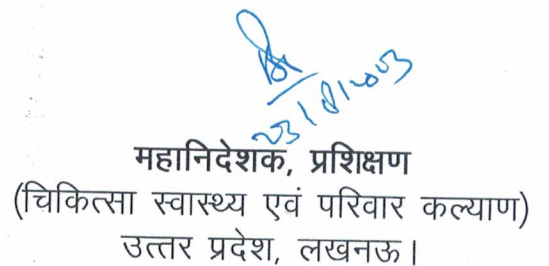 23/8/2003
महानिदेशक, प्रशिक्षण
(चिकित्सा स्वास्थ्य एवं परिवार कल्याण)
उत्तर प्रदेश, लखनऊ।